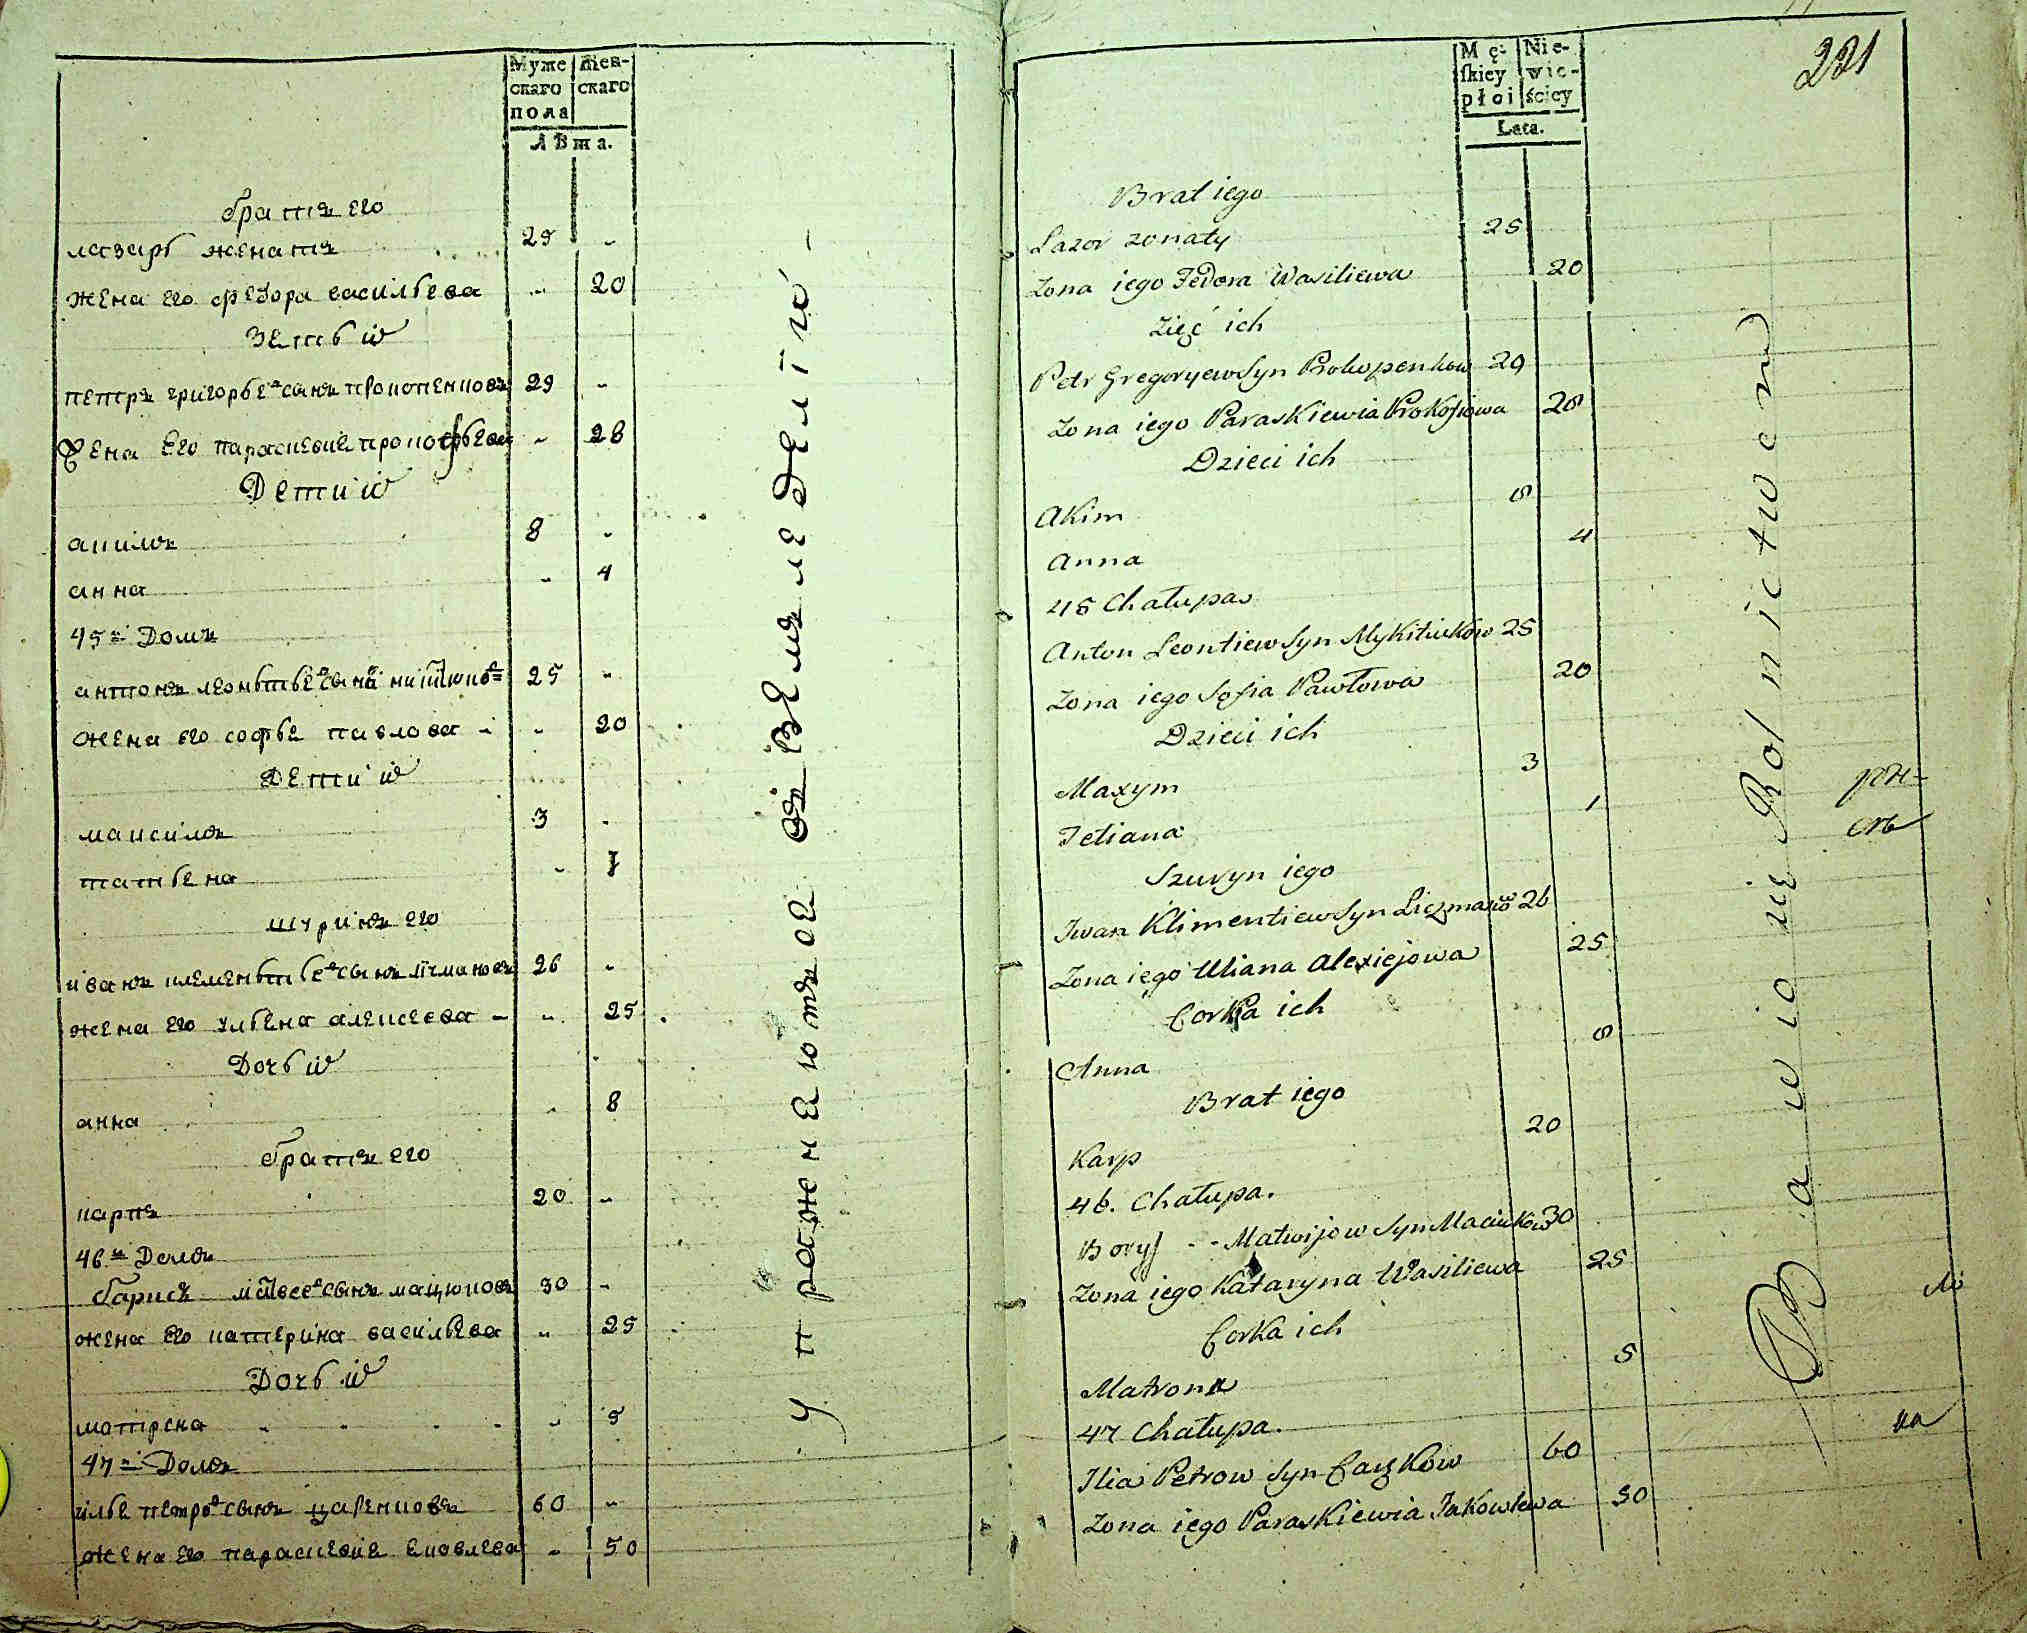 Муже Жен-
скаго скаго
пола
Лѣта.
братъ его
лазарь женатъ 25 -
жена его федора васильева - 20
зеть их
петръ григорьев сынъ прокопенковъ 29 -
Жена его параскевие прокофьева - 28
Дети их
акимъ 8 -
анна - 4
45й Домъ
антонъ леонтьев сынъ
25 -
жена его софье павлова - 20
Дети их
максимъ 3 -
татьена - 1
шуринъ его
иванъ клементьев сынъ личмановъ 26 -
жена его ульена алексеева - 25
Дочь их
анна - 8
братъ его
карпъ 20 -
46й Домъ
барисъ матвеев сынъ мацюковъ 30 -
жена его катерина васильева - 25
Дочь их
мотрена - 5
47й Домъ
илье петров сынъ 60 -
жена его параскевие ековлева - 50
упражнаютце въ земледелию -
221
Mę- Nie-
skiey wie-
płci ściey
Lata.
Brat iego
Lazor zonaty 25
Zona iego Fedora Wasiliewa 20
Zięć ich
Petr Gregoryew Syn Prokopenkow 29
Zona iego Paraskiewia Prokofiowa 28
Dzieci ich
Akim 8
Anna 4
45 Chałupa
Anton Leontiew Syn Mykitiukow 25
Zona iego Sofia Pawłowa 20
Dzieci ich
Maxym 3
Tetiana 1
Szuryn iego
Iwan Klimentiew Syn Liczmanow 26
Zona iego Uliana Alexiejowa 25
Corka ich
Anna 8
Brat iego
Karp 20
46. Chałupa.
Borys -- Matwijow Syn Maciukow 30
Zona iego Kataryna Wasiliewa 25
Corka ich
Matrona 5
47 Chałupa.
Ilia Petrow Syn 60
Zona iego Paraskiewia Jakowlewa 50
Bawio się Rolnictwem